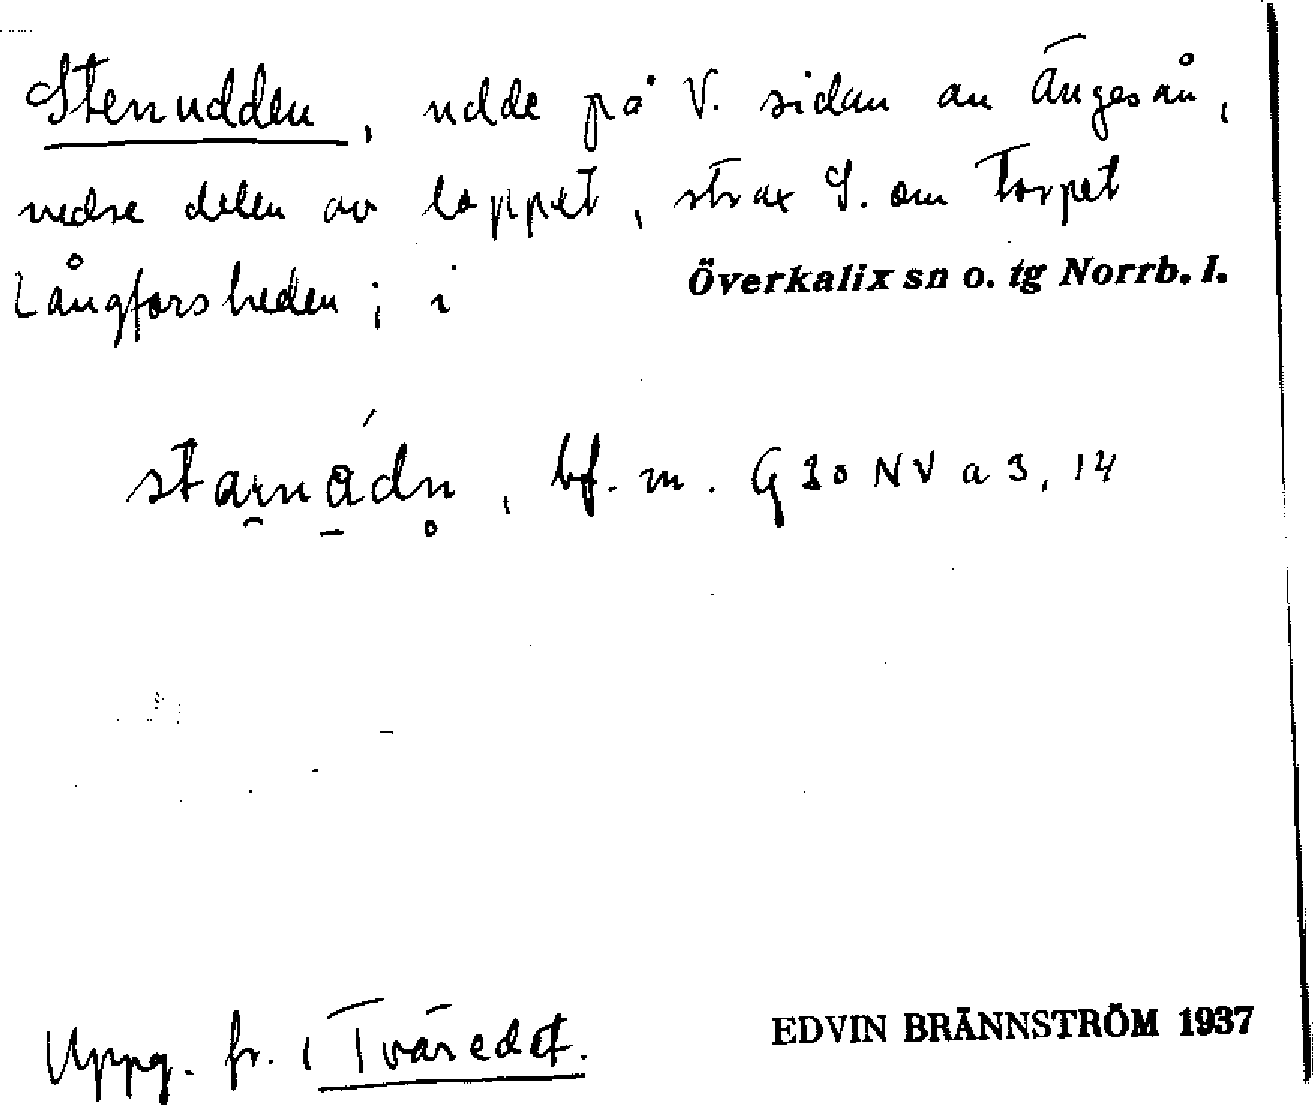 Stenudden, udde på V. sidan av Ängesån,
nedre delen av loppet, strax S. om Torpet
Långforsheden; i Överkalix sn o. tg Norrb. l.
bf. m. G 30 NV a 3, 14
Uppg. fr. i Tväredet.
EDVIN BRÄNNSTRÖM 1937